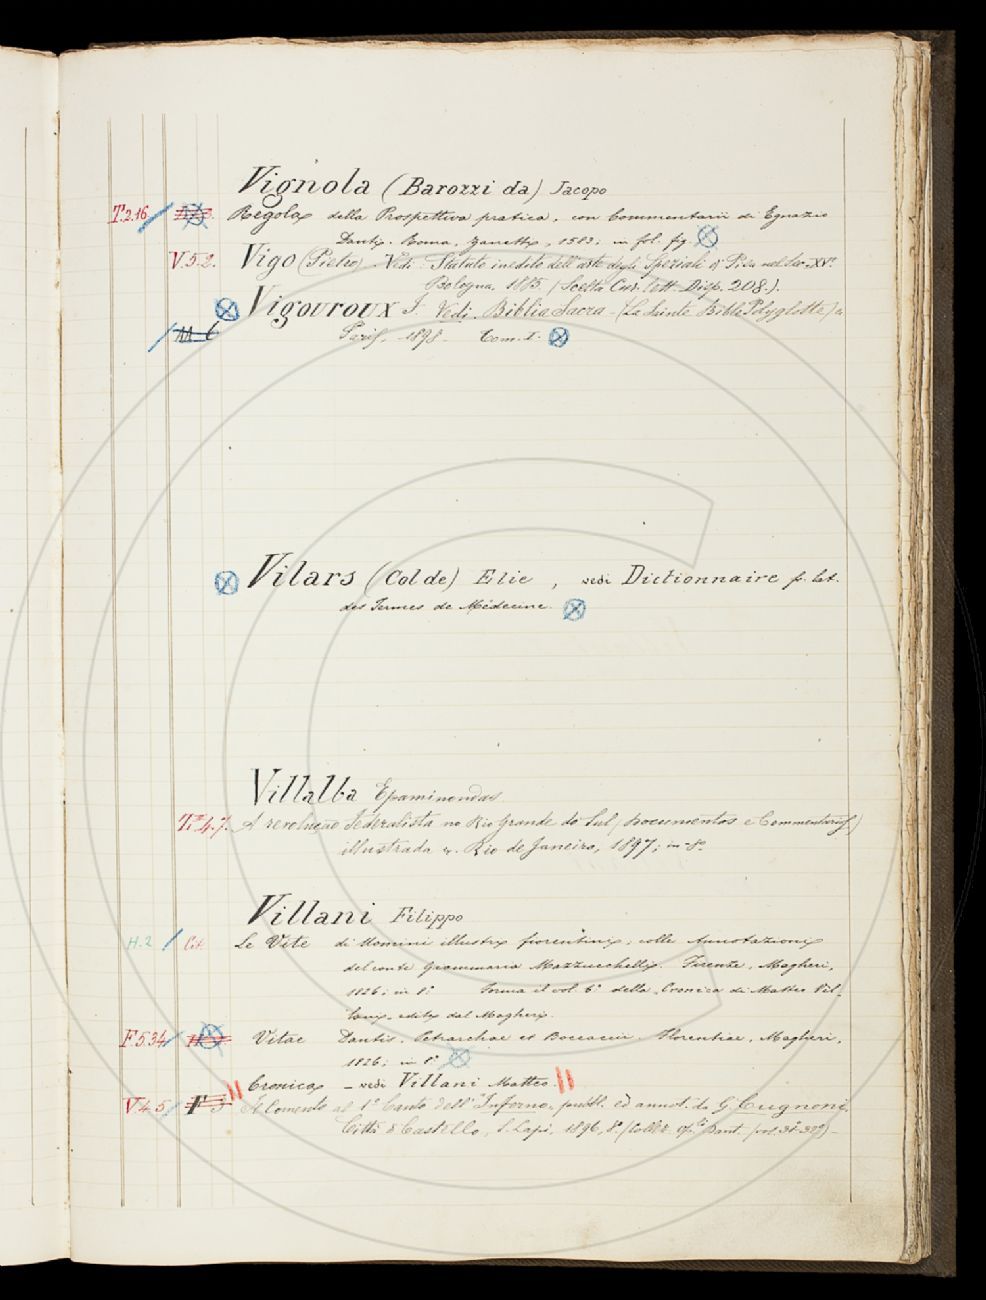 Vignola (Barozzi da) Jacopo
T.2.16 Regola della Prospettiva pratica, con Commentarii di Egnazio
Danti. Roma, Zanetti, 1583; in fol. fig.
V.5.2. Vigo (Pietro) Vedi: Statuto inedito dell'arte degli Speziali di Pisa nel Sec. XV.
Bologna, 1885. (Scelta Cur. lett. Disp. 208.).
Vigouroux F. Vedi. Biblia Sacra - (La Sainte Bible Polyglotte)
Paris, 1898. Tom. I.
Vilars (Col de) Elie, vedi Dictionnaire fr. lat.
des Termes de Médecine.
Villalba Epaminondas
A revolução federalista no Rio Grande do Sul (Documentos e Commentarios)
illustrada Rio de Janeiro, 1897; in-8º
Villani Filippo
H.2 Le Vite di Uomini illustri fiorentini, colle Annotazioni
del conte Giammaria Mazzucchelli. Firenze, Magheri,
1826; in 8º Forma il vol 6º della Cronica di Matteo Vil-
lani, edita dal Magheri.
F.5.34 Vitae Dantis, Petrarchae et Boccaccii. Florentiae, Magheri,
1826; in 8º
Cronica - vedi Villani Matteo.
V.4.5 Il Comento al 1º Canto dell'Inferno, pubbl. ed annot. da G. Cugnoni,
Città di Castello, S. Lapi, 1896, 8º (Collez. Dant.